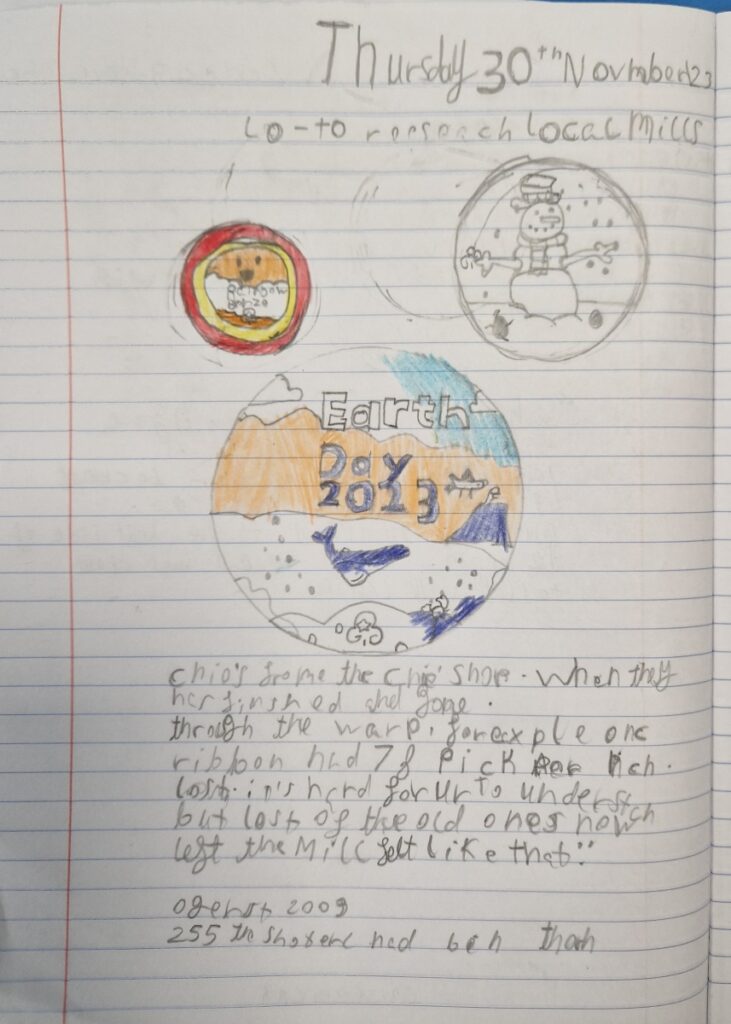 Thursday 30th Novmber 23
LO-to reeseach Local Mills
Rainbow
Earth
Day
2023
chip's frome the chip shope. When they
has finshed and gone.
through the warp, forexple one
ribbon had 78 Pick Per inch.
lost. it's hard for ur to underst
but lost of the old ones how
left the Mill felt like that"
2009
255 the had